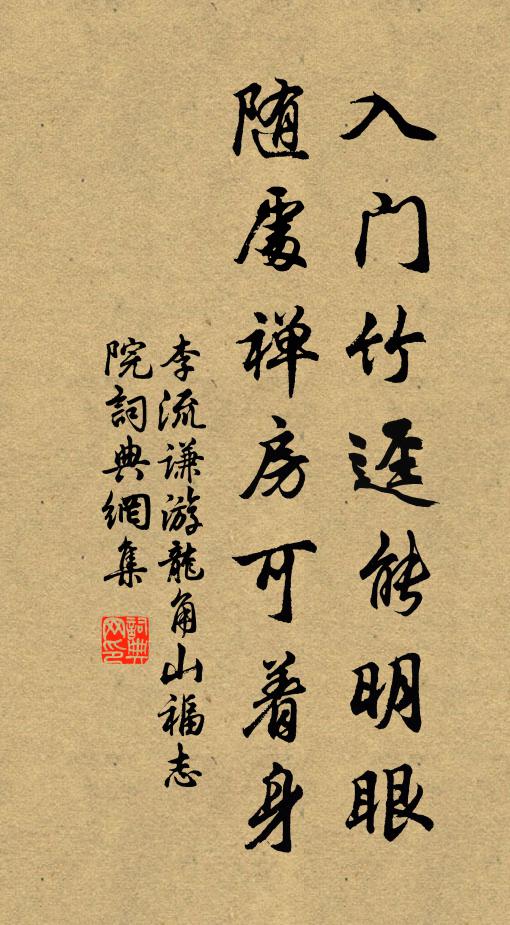 入门竹逕能明眼
随處禅房可着身
李流谦游龍角山福志
院詞典網集
詞典
网印